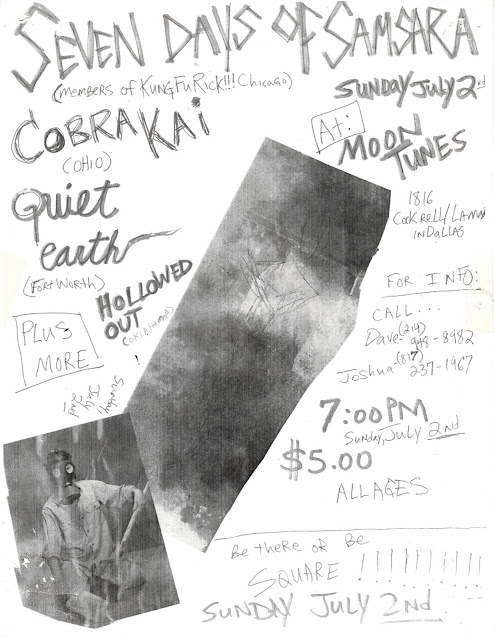 SEVEN DAYS OF SAMSARA
(members of KUNG FU RICK!!! Chicago)
SUNDAY JULY 2nd
COBRA KAI
(OHIO)
At:
MOON
TUNES
Quiet
earth
(FORT WORTH)
1816
Cockrell/Lamar
IN DALLAS
HOLLOWED
OUT
(OKLAHOMA)
FOR INFO:
CALL...
Dave (214)
948-8982
Joshua (817)
237-1967
PLUS
MORE
!
Sunday
July
2nd
7:00PM
Sunday, JULY 2nd
$5.00
ALL AGES
Be there or Be
SQUARE !!!!!!!!!!
SUNDAY JULY 2nd